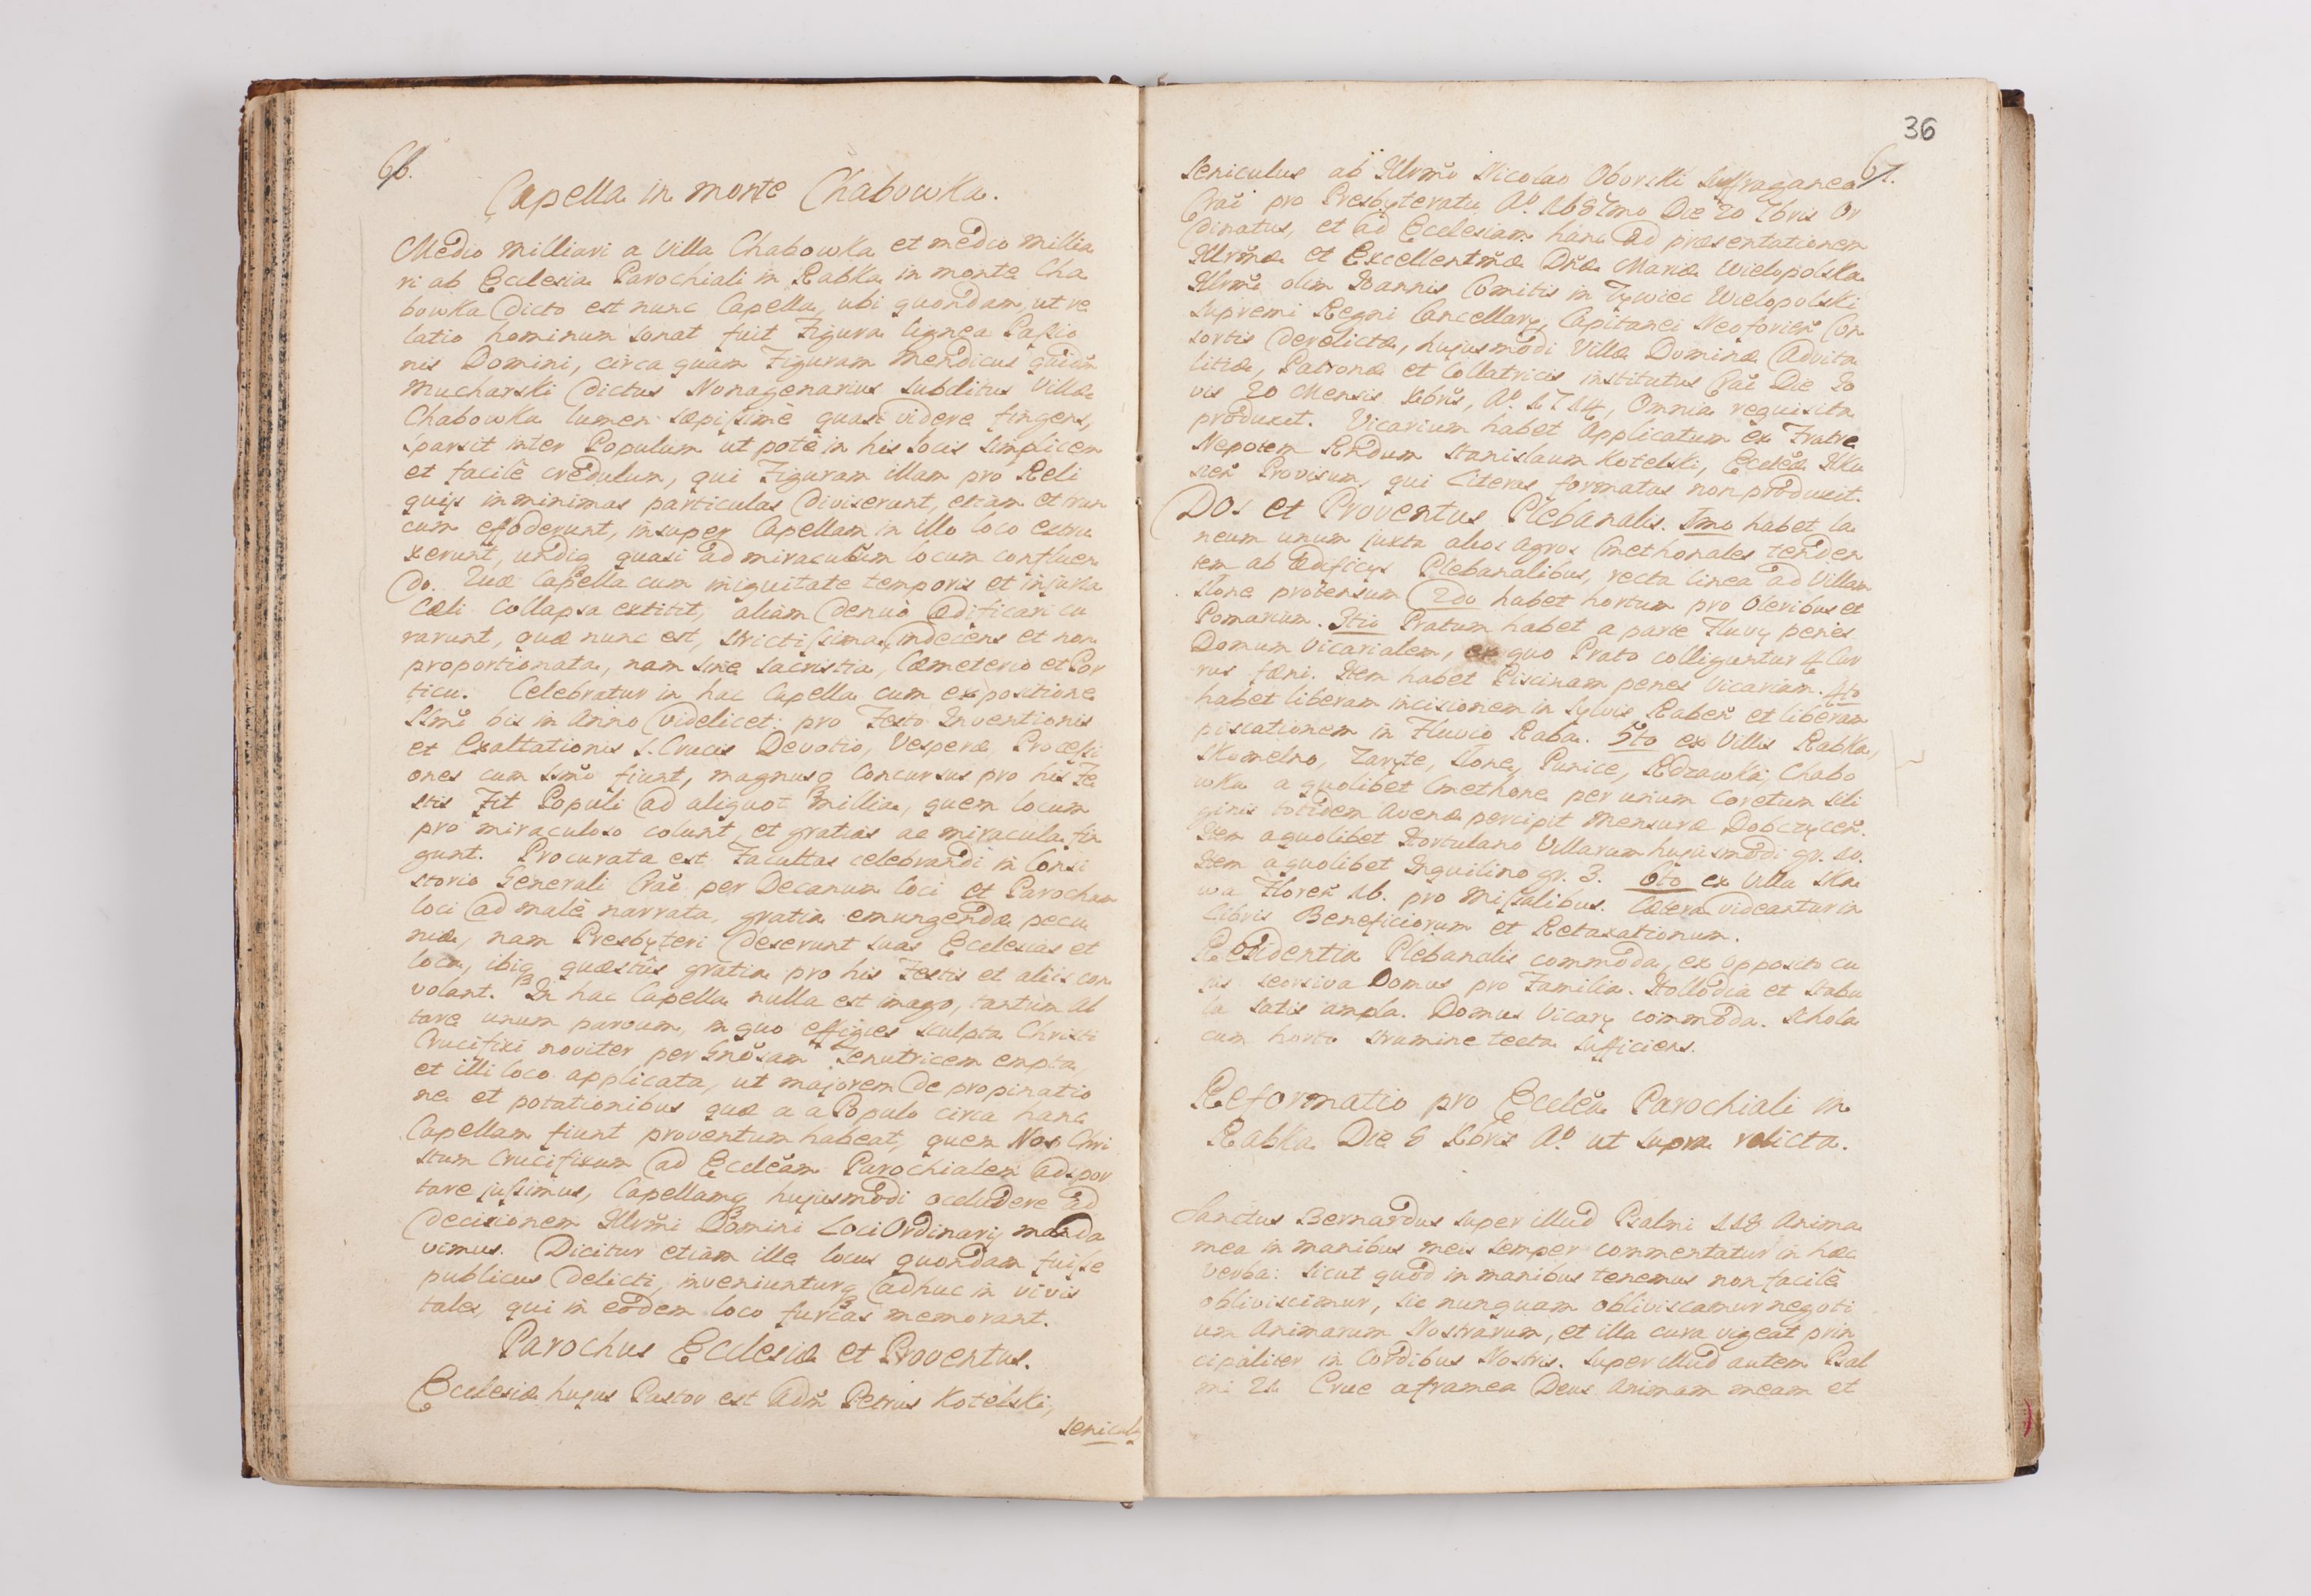 66.
Capella in monte Chabowka.
Medio milliari a Villa Chabowka et medio millia
ri ab Ecclesia Parochiali in Rabka in monte Cha
bowka Dicto est nunc Capella, ubi quondam, ut re
latio hominum sonat fuit Figura lignea Passio
nis Domini, circa quam Figuram Mendicus quidm̃
Mucharski Dictus Nonagenarius Subditus Villæ
Chabowka lumen sæpissimè quasi videre fingens,
sparsit inter Populum ut potè in his locis simplicem
et facilè credulum, qui Figuram illam pro Reli
quijs in minimas particulas Diviserunt, etiam et trun
cum effoderunt, insuper Capellam in illo loco extru
xerunt, undiq quasi ad miraculum locum confluen
do. Quæ Capella cum iniquitate temporis et injuria
Cæli Collapsa extitit, aliam Denuò ædificari cu
rarunt, quæ nunc est, strictissima, indecens et non
proportionata, nam sine Sacristia, Cæmeterio et Por
ticu. Celebratur in hac Capella cum expositione
SSmĩ bis in Anno Videlicet: pro Festo Inventionis
et Exaltationis S. Crucis Devotio, Vesperæ Processi
ones cum SSmõ fiunt, magnusq Concursus pro his Fe
stis Fit Populi ad aliquot millia, quem locum
pro miraculoso colunt, et gratias ac miracula fin
gunt. Procurata est Facultas celebrandi in Consi
storio Generali Craĉ per Decanum loci et Parochum
loci ad malè narrata, gratia emungendæ pecu
niæ, nam Presbyteri Deserunt suas Ecclesias et
loca, ibiq quæstûs gratia pro his Festis et aliis con
volant. In hac Capella nulla est imago, tantùm Al
tare unum parvum, in quo effigies sculpta Christi
Crucifixi noviter per Gnõsam Tenutricem empta,
et illi loco applicata, ut majorem De propinatio
ne et potationibus quæ a a Populo circa hanc
Capellam fiunt proventum habeat, quem Nos Chri
stum Crucifixum ad Eccleãm Parochialem adspor
tare jussimus, Capellamq hujusmodi occludere ad
Decisionem Illrmĩ Domini Loci Ordinarij manda
vimus. Dicitur etiam ille locus quondam fuisse
publicus Delicti, inveniunturq adhuc in vivis
tales, qui in eodem loco furcas memorant.
Parochus Ecclesiæ et Proventus.
Ecclesiæ hujus Pastor est Adm̃ Petrus Kotelski,
Senicul9
36
67.
Seniculus ab Illrmõ Nicolao Oborski Suffraganeo
Craĉ pro Presbyteratu Aº. 1687mo Die 20 7bris Or
Dinatus, et ad Ecclesiam hanc ad præsentationem
Illrmæ et Excellentmæ Dnæ Mariæ Wielopolska
Illrmĩ olim Joannis Comitis in Zywiec Wielopolski
Supremi Regni Cancellarij, Capitanei Neoforien̄ Con
sortis Derelictæ, hujusmodi Villæ Dominæ Advita
litiæ, Patronæ et Collatricis institutus Craĉ Die Jo
vis 20 Mensis Xbris, Aº. 1714, Omnia requisita
produxit. Vicarium habet Applicatum ex Fratre
Nepotem Rndum Stanislaum Kotelski, Eccleæ Ilku
sien̄ Provisum, qui Literas formatas non produxit.
Dos et Proventus Plebanalis. Imo habet la
neum unum juxta alios Agros Cmethonales tenden
tem ab ædificijs Plebanalibus, recta linea ad Villam
Slone protensum 2do habet hortum pro Oleribus et
Pomarium. 3tio Pratum habet a parte Fluvij penes
Domum Vicarialem, ex quo Prato colliguntur 4 Cur
rus fæni. Item habet Piscinam penes Vicariam. 4to
habet liberam incisionem in Sylvis Raben̄ et liberam
piscationem in Fluvio Raba. 5to ex Villis Rabka,
Skomelno, Zaryte, Slone, Ponice, Rdzawka, Chabo
wka a quolibet Cmethone per unum Coretum Sili
ginis totidem Avenæ percipit Mensuræ Dobczycen̄.
Item a quolibet Hortulano Villarum hujusmodi gr. 10.
Item a quolibet Inquilino gr. 3. 6to ex Villa Ska
wa Floren̄ 16. pro Missalibus. Cætera videantur in
Libris Beneficiorum et Retaxationum.
Residentia Plebanalis commoda, ex opposito cu
jus seorsiva Domus pro Familia. Stollodia et Stabu
la satis ampla. Domus Vicarij commoda. Schola
cum horto stramine tecta sufficiens.
Reformatio pro Eccleã Parochiali in
Rabka Die 8 Xbris Aº ut Supra relicta.
Sanctus Bernardus super illud Psalmi 118 Anima
mea in manibus meis semper commentatur in hæc
Verba: Sicut quod in manibus tenemus non facilè
obliviscimur, sic nunquam obliviscamur negoti
um Animarum Nostrarum, et illa cura vigeat prin
cipaliter in Cordibus Nostris. Super illud autem Psal
mi 21 Erue a framea Deus Animam meam et